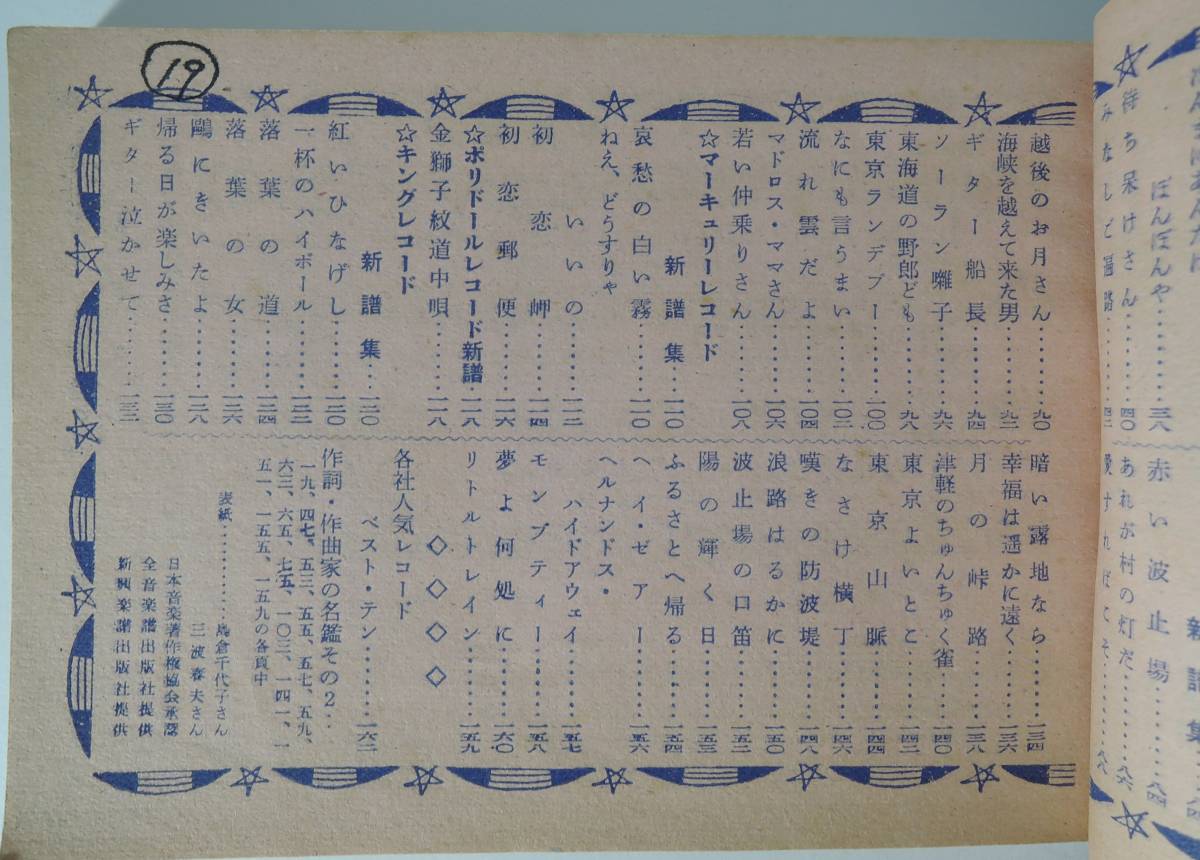 ⑲
越後のお月さん………九〇
海峡を越えて来た男 九二
ギター船長……九四
ソーラン囃子……九六
東海道の野郎ども……九八
東京ランデブー……一〇〇
なにも言うまい……一〇二
流れ雲だよ……一〇四
マドロス・ママさん……一〇六
若い仲乗りさん……一〇八
☆マーキュリーレコード
新譜集……一一〇
哀愁の白い霧……一一〇
ねえ、どうすりゃ
いいの……一一二
初恋岬……一一四
初恋郵便……一一六
☆ポリドールレコード新譜 一一八
金獅子紋道中唄……一一八
☆キングレコード
新譜集……一二〇
紅いひなげし……一二〇
一杯のハイボール……一二二
落葉の道……一二四
落葉の女……一二六
鷗にきいたよ……一二八
帰る日が楽しみさ……一三〇
ギター泣かせて……一三二
暗い露地なら……一三四
幸福は遥かに遠く……一三六
月の峠路……一三八
津軽のちゅんちゅく雀……一四〇
東京よいとこ……一四二
東京山脈……一四四
なさけ横丁……一四六
嘆きの防波堤……一四八
浪路はるかに……一五〇
波止場の口笛……一五二
陽の輝く日……一五三
ふるさとへ帰る……一五四
ヘイ・ゼアー……一五六
ヘルナンドス・
ハイドアウェイ……一五七
モンプティー……一五八
夢よ何処に……一六〇
リトルトレイン……一五九
◇◇◇◇
各社人気レコード
ベスト・テン……一六二
作詞・作曲家の名鑑その2‥
一九、四七、五三、五五、五七、五九、
六三、六五、七五、一〇三、一四一、一
五一、一五五、一五九の各頁中
表紙………島倉千代子さん
三波春夫さん
日本音楽著作権協会承認
全音楽譜出版社提供
新興楽譜出版社提供
ぽんぽんや………三八
待ち呆けさん……四〇
みなしご遍路……四二
赤い波止場……八四
あれが村の灯だ……八六
愛すればこそ……八八